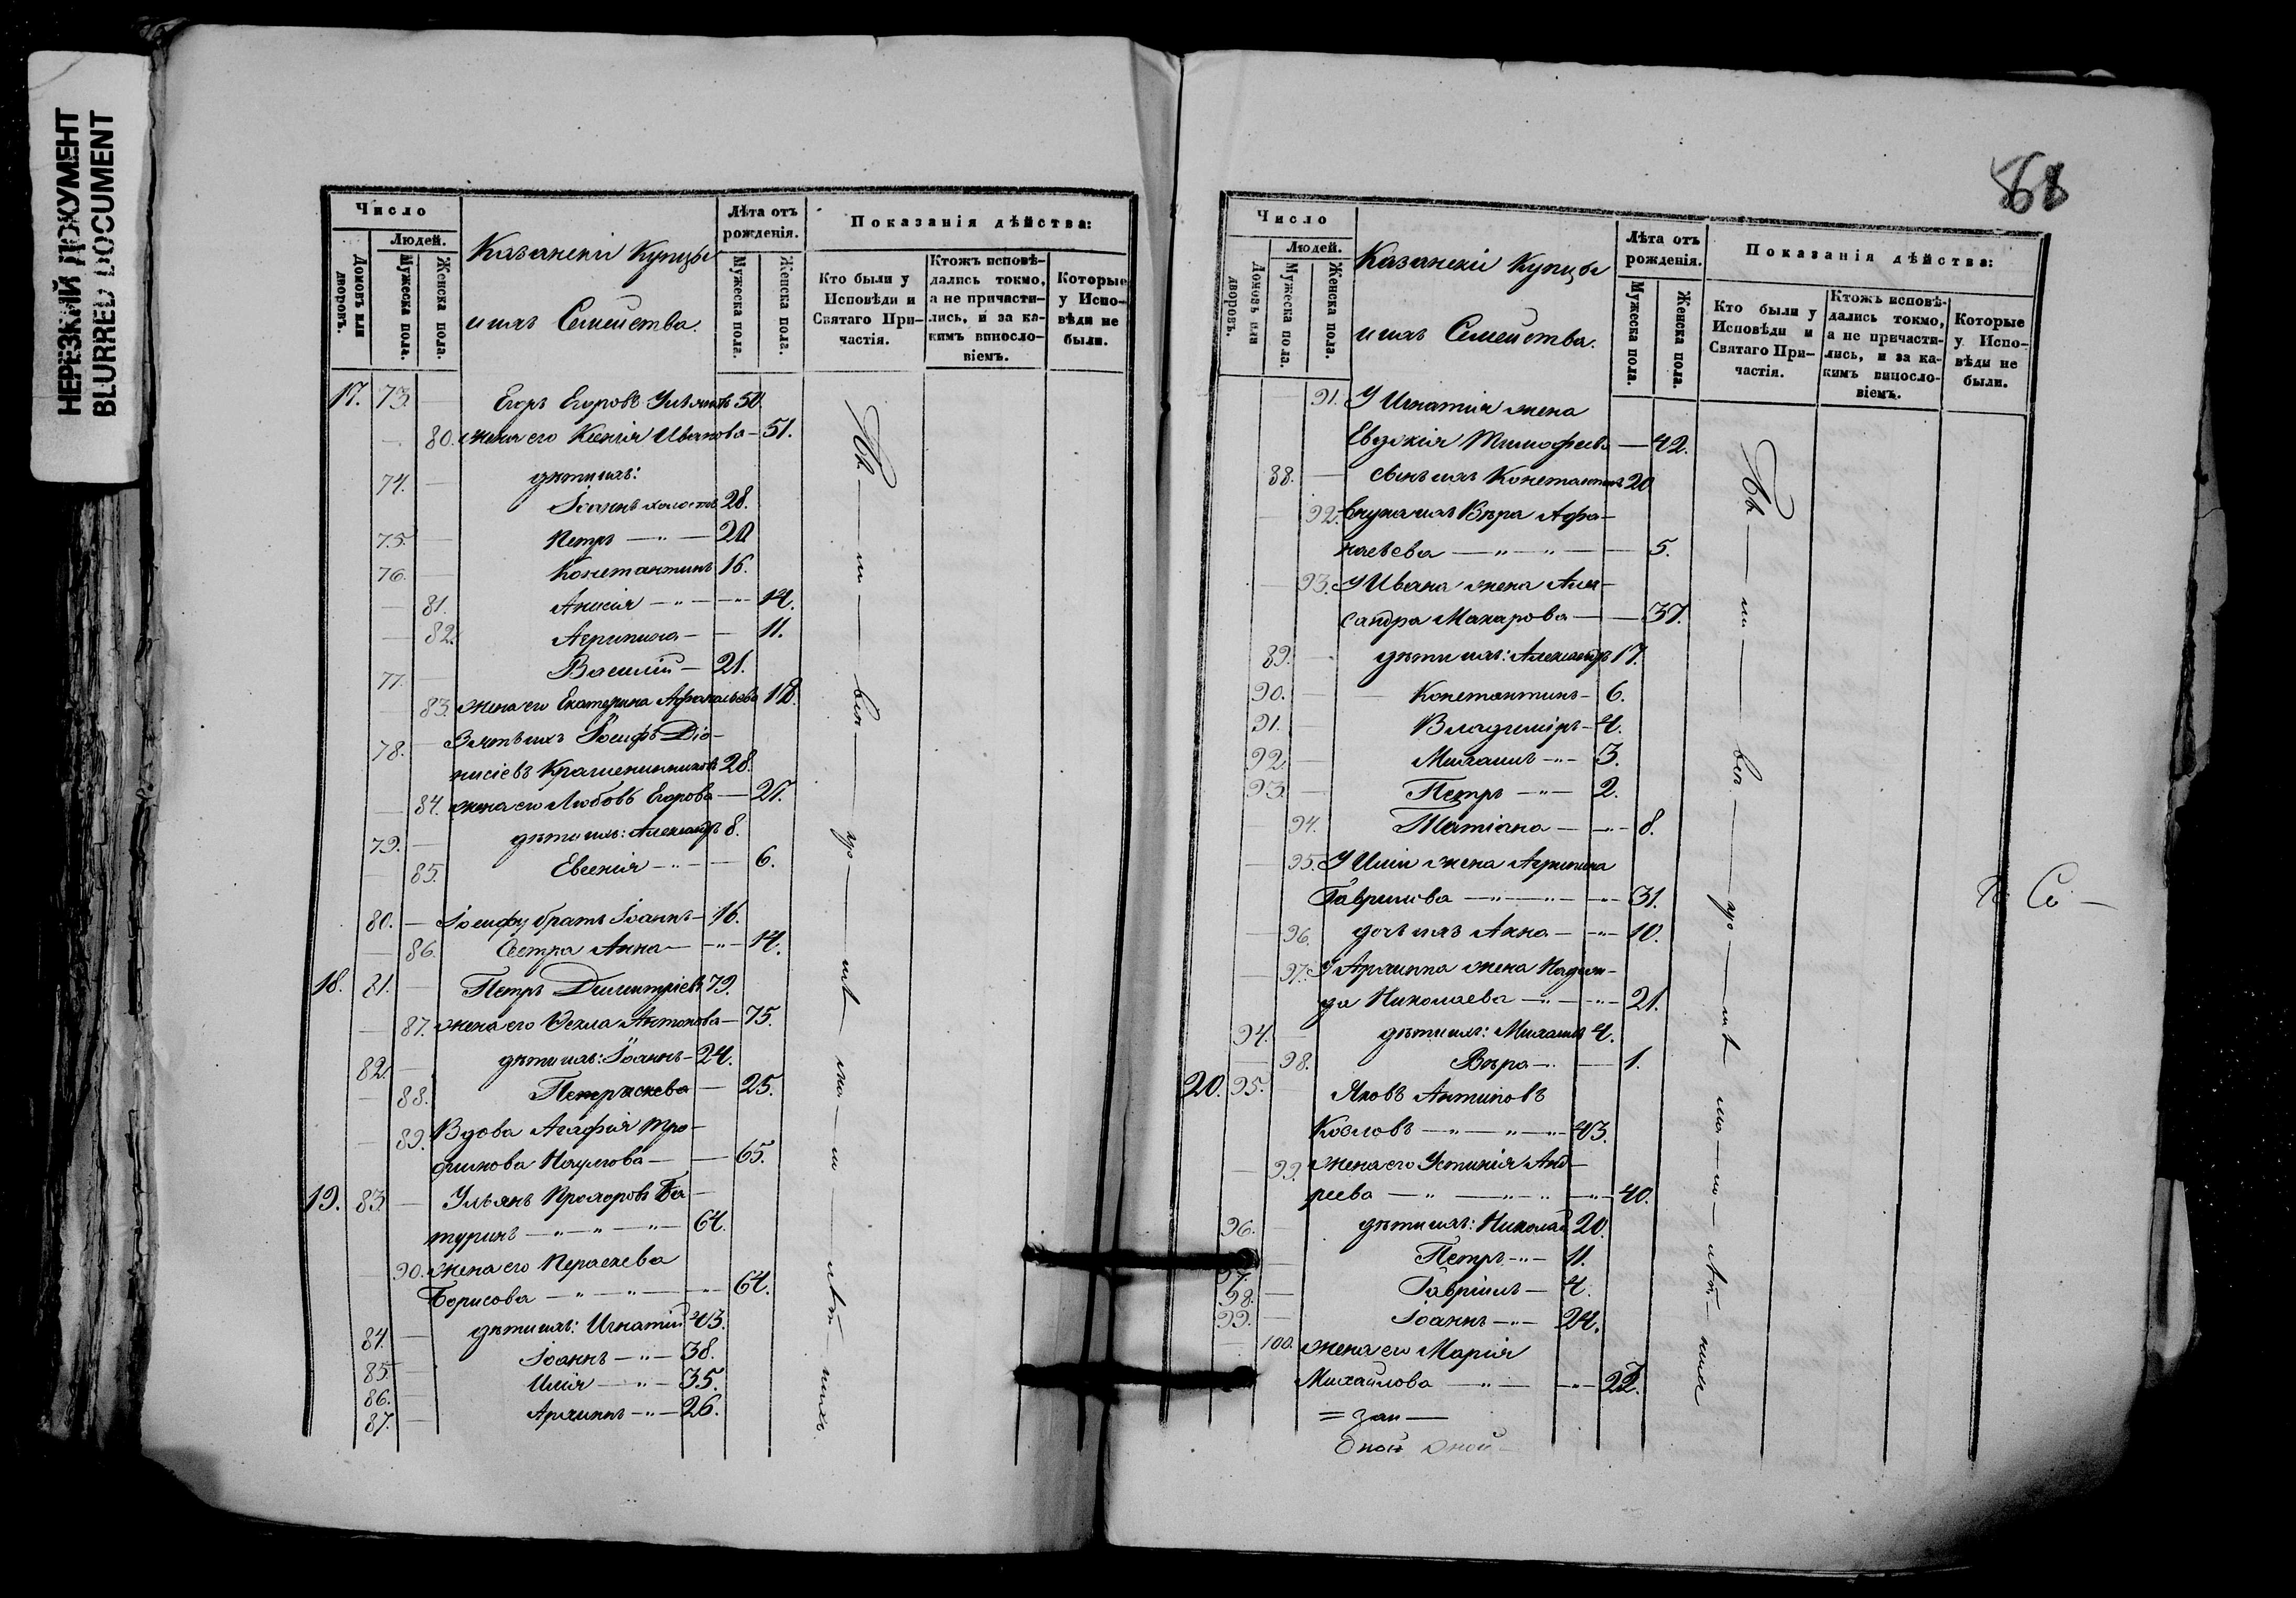 НЕРЕЗКИЙ ДОКУМЕНТ
BLURRED DOCUMENT
Число
Людей.
Домовъ или дворовъ.
Мужеска пола.
Женска пола.
Казанскіи Купцы
и ихъ Семейства.
Лѣта отъ рожденія.
Мужеска пола.
Женска пола.
Показанія дѣйства:
Кто были у Исповѣди и Святаго Причастія.
Ктожъ исповѣдались токмо, а не причастились, и за какимъ винословіемъ.
Которые у Исповѣди не были.
17. 73. — Егоръ Егоровъ 50
— 80. жена его Ксенія Иванова — 51.
дѣти ихъ:
74. — Іоаннъ холостъ 28.
75. — Петръ — " — 20
76. — Константинъ 16.
— 81. Анисія — " — " — 14.
— 82. Агрипина — — 11.
77. — Василій — 21.
— 83. жена его Екатерина Афанасьева 18.
78. — Зять ихъ Іосифъ Діо-
нисіевъ Крашенинниковъ 28.
— 84. жена его Любовь Егорова — 27.
79. — дѣти ихъ: Александръ 8.
— 85. Евгенія — " — — 6.
80. — Іосифу братъ Іоаннъ — 16.
— 86. Сестра Анна — — " — 14.
18. 81. — Петръ Димитріевъ 79.
— 87. жена его Ѳекла Антонова — 75.
82. — дѣти ихъ: Іоаннъ — 24.
— 88. Параскева — 25.
— 89. Вдова Агафія Тро-
фимова — — 65.
19. 83. — Ульянъ Прохоровъ Ба-
туринъ — " — " — " — 64.
— 90. жена его Параскева
Борисова — " — " — — " — 64.
84. — дѣти ихъ: Игнатій 43.
85. — Іоаннъ — " — 38.
86. — Илія — " — 35.
87. — Архиппъ — " — 26.
68
Число
Людей.
Домовъ или дворовъ.
Мужеска пола.
Женска пола.
Казанскіи Купцы
и ихъ Семейства.
Лѣта отъ рожденія.
Мужеска пола.
Женска пола.
Показанія дѣйства:
Кто были у Исповѣди и Святаго Причастія.
Ктожъ исповѣдались токмо, а не причастились, и за какимъ винословіемъ.
Которые у Исповѣди не были.
— 91. У Игнатія жена
Евдокія Тимофеева — 42.
88. — сынъ ихъ Константинъ 20
— 92. внука ихъ Вѣра Афа-
насьева — " — " — — 5.
— 93. У Ивана жена Алек-
сандра Макарова — — 37.
89. — дѣти ихъ: Александръ 17.
90. — Константинъ — 6.
91. — Владиміръ — 4.
92. — Михаилъ — " — 3.
93. — Петръ — " — 2.
— 94. Татіана — — " — 8.
— 95. У Иліи жена Агрипина
Гаврилова — " — " — — " — 31.
— 96. дочь ихъ Анна — — " — 10.
— 97. У Архиппа жена Надеж-
да Николаева — " — — " — 21.
94. — дѣти ихъ: Михаилъ 4.
— 98. Вѣра — " — 1.
20. 95. Яковъ Антиповъ
Козловъ — " — " — " — 43.
— 99. жена его Устинія Анд-
реева — " — " — " — " — 40.
96. — дѣти ихъ: Николай 20.
97. — Петръ — " — 11.
98. — Гавріилъ — 4.
99. — Іоаннъ — " — 24.
— 100. жена его Марія
Михайлова — " — — " — 22.